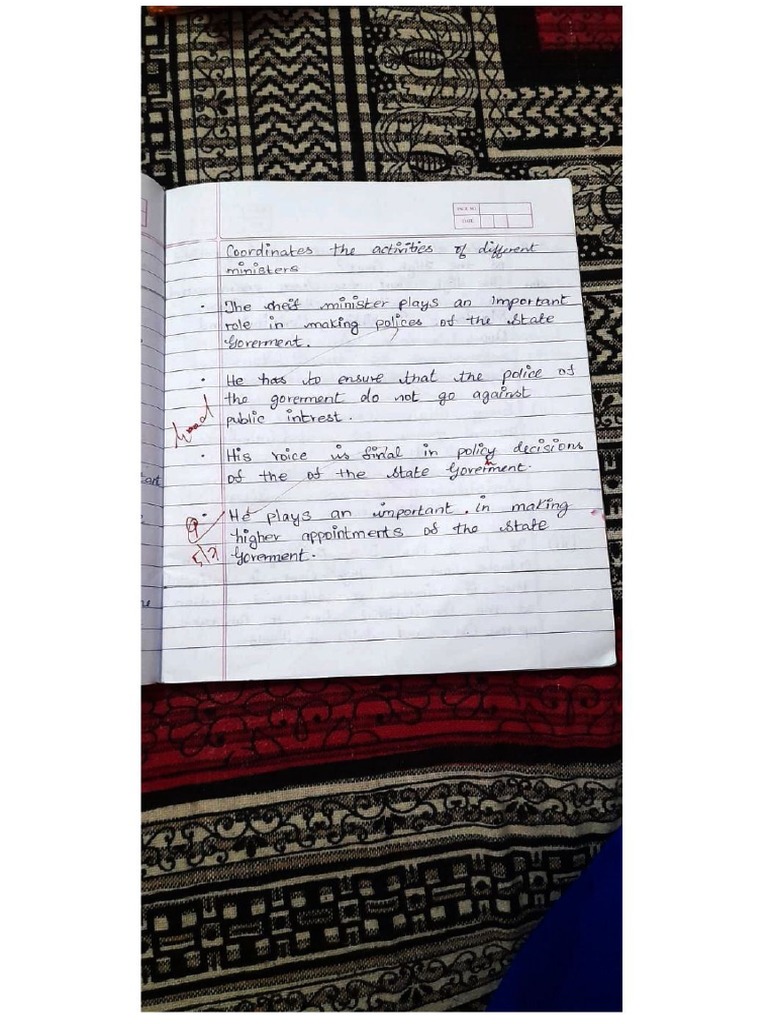 PAGE NO.
DATE
Coordinates the activities of different
ministers
The cheif minister plays an important
role in making polices of the state
Goverment.
He has to ensure that the police of
the goverment do not go against
public intrest.
His voice is final in policy decisions
of the of the state Goverment.
He plays an important in making
higher appointments of the state
Goverment.